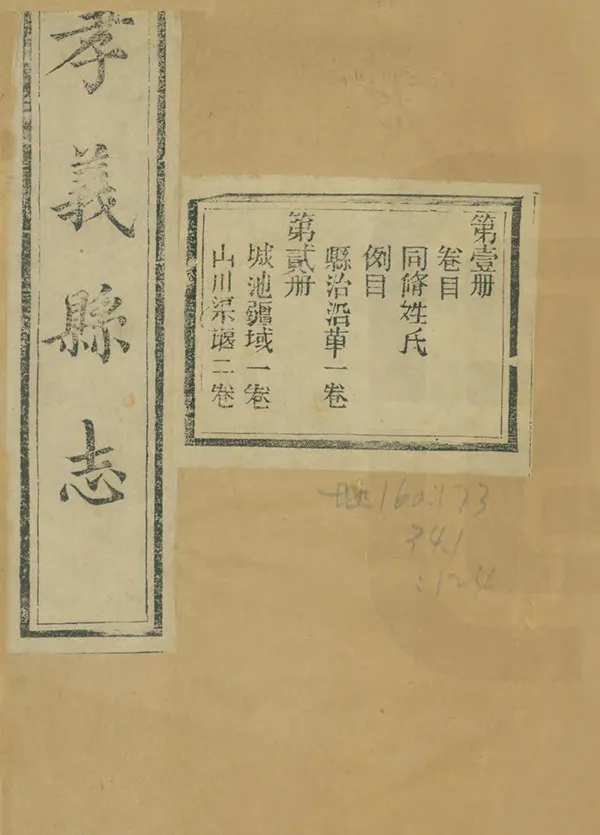 孝義縣志
第壹册
卷目
同脩姓氏
例目
縣治沿革一卷
第貳册
城池疆域一卷
山川渠堰二卷
160:173
34.1
:124